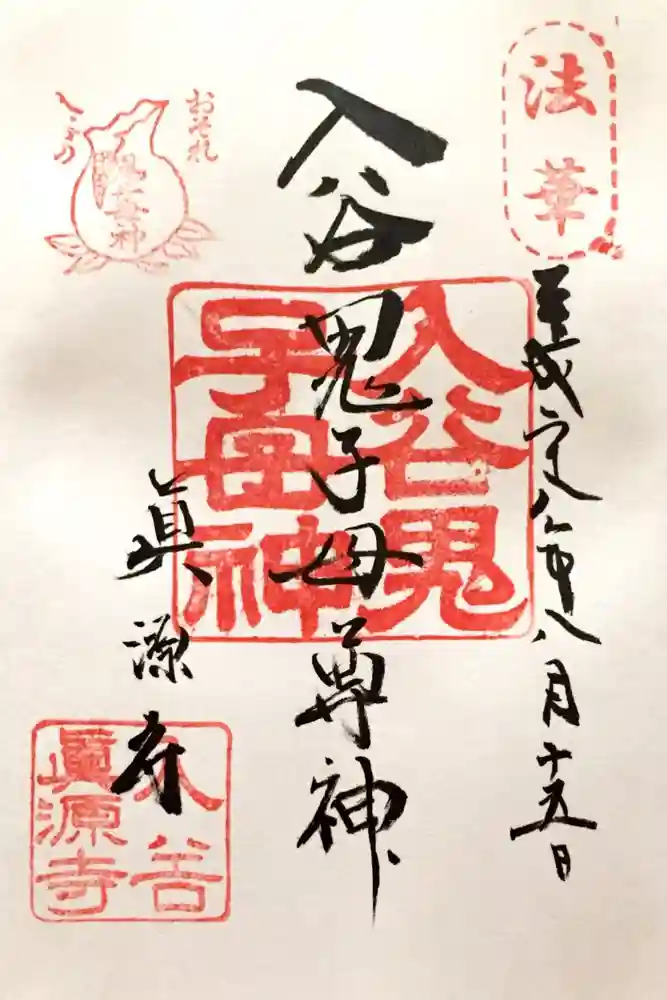 法華
平成八年八月十五日
入谷鬼子母尊神
入谷鬼
子母神
眞源寺
入谷
眞源寺
おそれ
入やの
鬼子母神